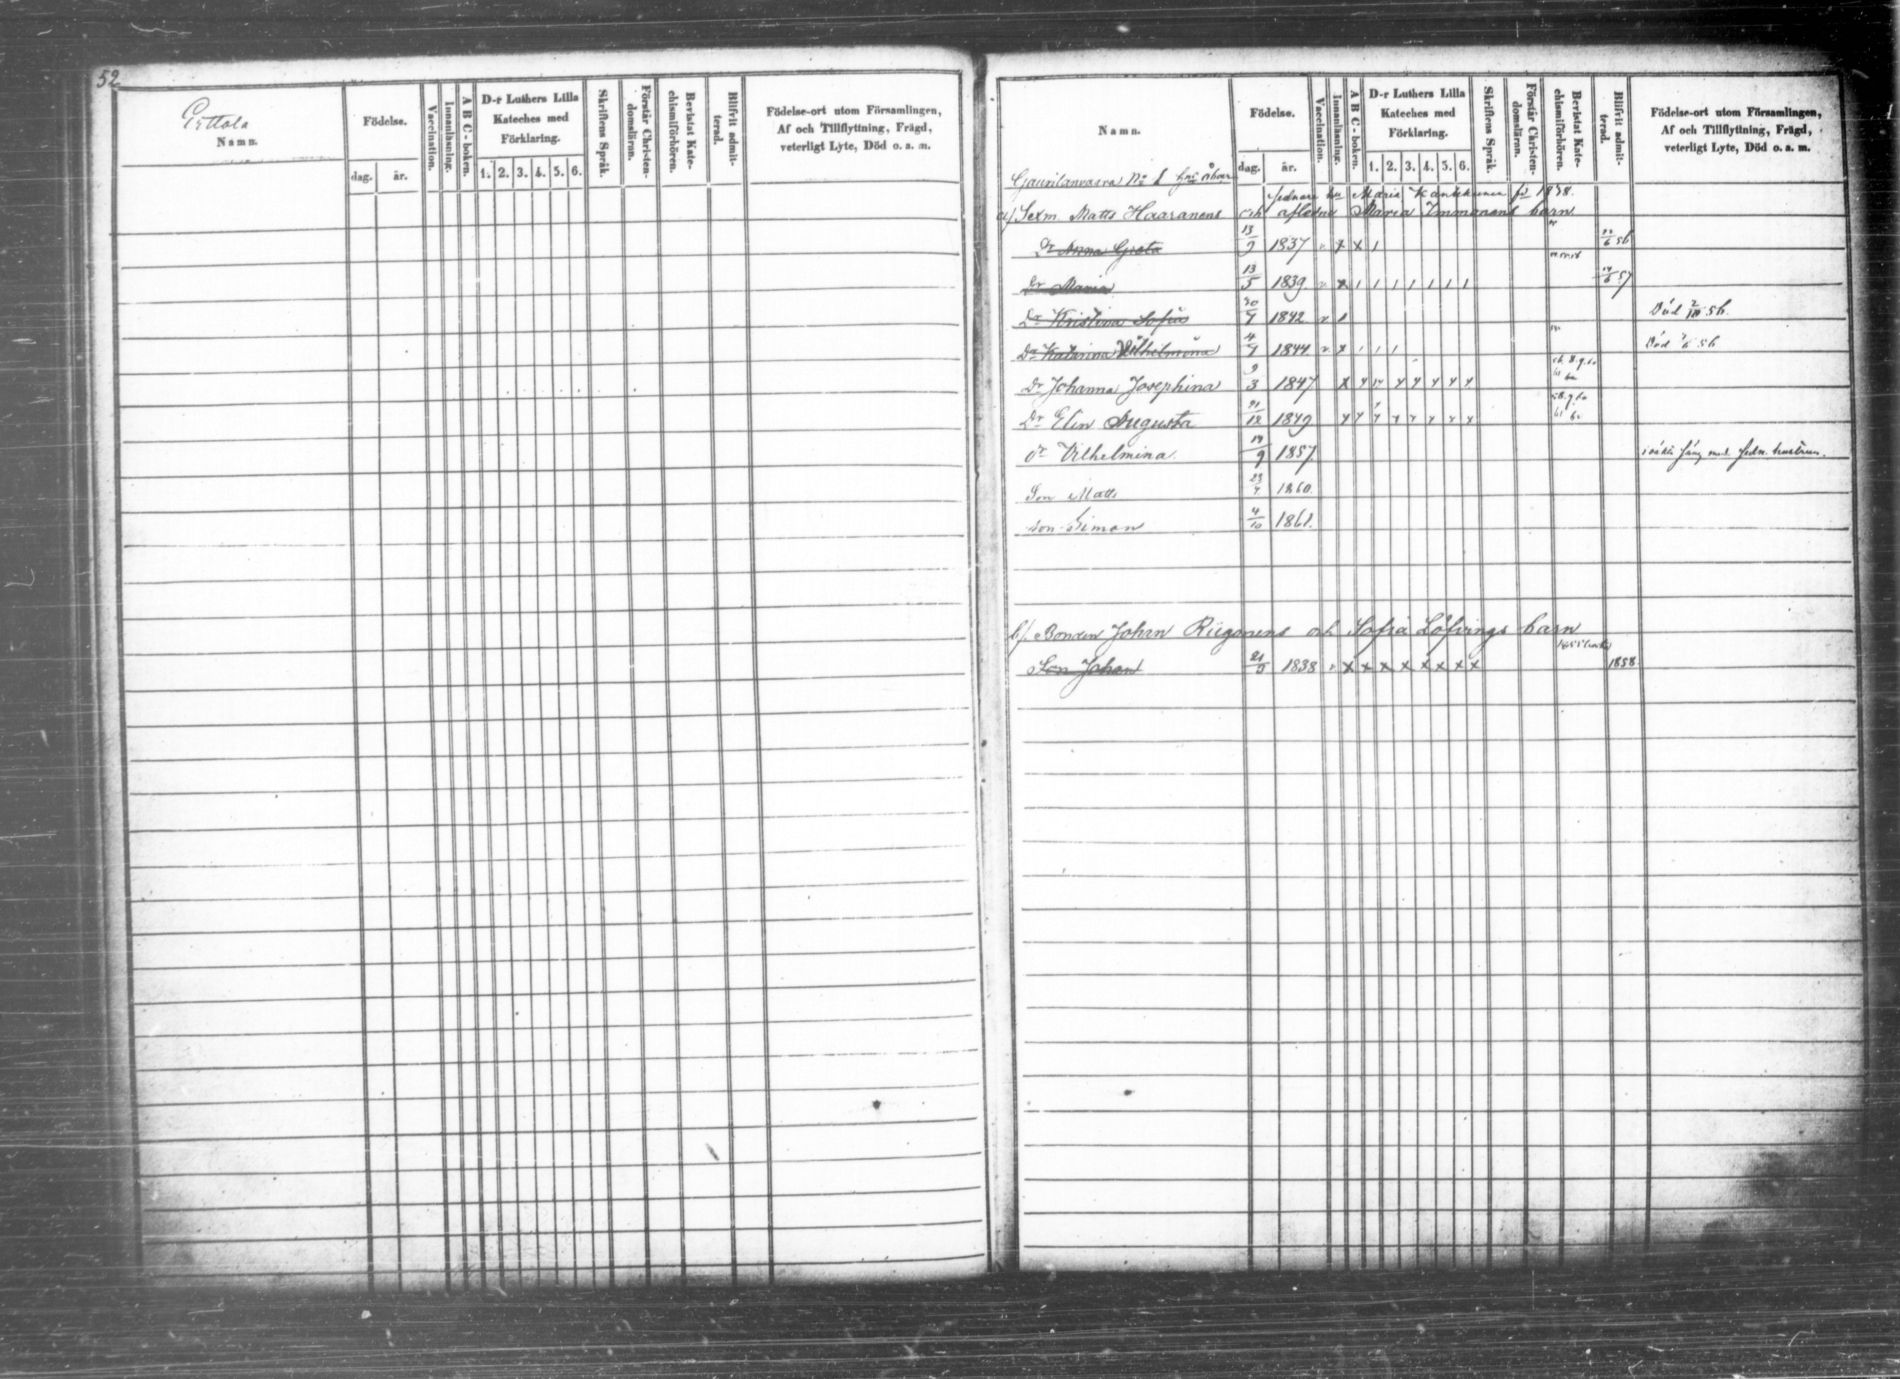 52
Pittola
Namn.
Födelse.
dag. år.
Vaccination.
Innanläsning.
A B C - boken.
D-r Luthers Lilla Kateches med Förklaring.
1. 2. 3. 4. 5. 6.
Skriftens Språk.
Förstår Christendomsläran.
Bevistat Katechismiförhören.
Blifvit admitterad.
Födelse-ort utom Församlingen,
Af och Tillflyttning, Frägd,
veterligt Lyte, Död o. a. m.
Namn.
Födelse.
dag. år.
Vaccination.
Innanläsning.
A B C - boken.
D-r Luthers Lilla Kateches med Förklaring.
1. 2. 3. 4. 5. 6.
Skriftens Språk.
Förstår Christendomsläran.
Bevistat Katechismiförhören.
Blifvit admitterad.
Födelse-ort utom Församlingen,
Af och Tillflyttning, Frägd,
veterligt Lyte, Död o. a. m.
Gaurilanvaara No 1
Sednare hu Maria Kankkunen fd 1838.
a/ Sexm. Matts Haaranens och afledne Maria Immonens barn
Dr Anna Greta 13/9 1837 v x x 1 56
Dr Maria 13/5 1839 v x 1 1 1 1 1 1 1 57
Dr Kristina Sofia 1842 v 1 Död 56.
Dr Katarina Vilhelmina 1844 v x 1 1 1 Död 56
Dr Johanna Josephina 9/3 1847
Dr Elin Augusta 21/12 1849
dr Vilhelmina 19/9 1857 i äkta säng med sedn. hustrun.
Son Matts 1860.
son Simon 4/10 1861.
b/. Bonden Johan Riigonens och Sofia Löfvings barn
Son Johan 21/9 1838 v x x x x x x x x 1858.